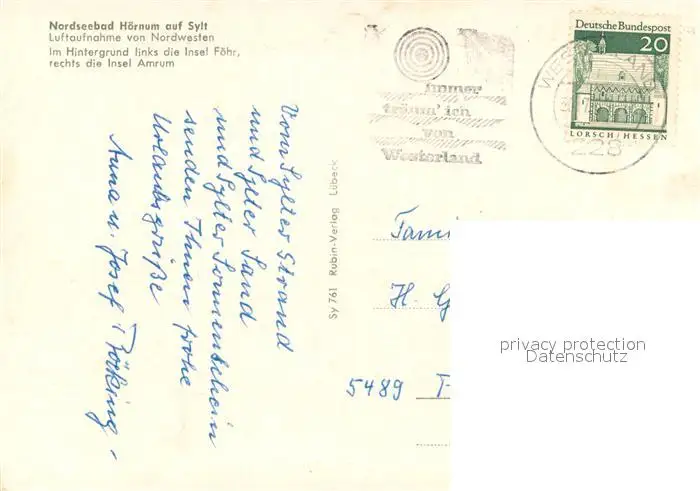 Nordseebad Hörnum auf Sylt
Luftaufnahme von Nordwesten
Im Hintergrund links die Insel Föhr,
rechts die Insel Amrum
Vom Sylter Strand
und Sylter Sand
und Sylter Sonnenschein
senden Ihnen frohe
Urlaubsgrüße
Anna u. Josef
Sy 761 Rubin-Verlag Lübeck
immer
träum' ich
von
Westerland
Deutsche Bundespost
20
LORSCH/HESSEN
228
Fami
H. G
5489
privacy protection
Datenschutz